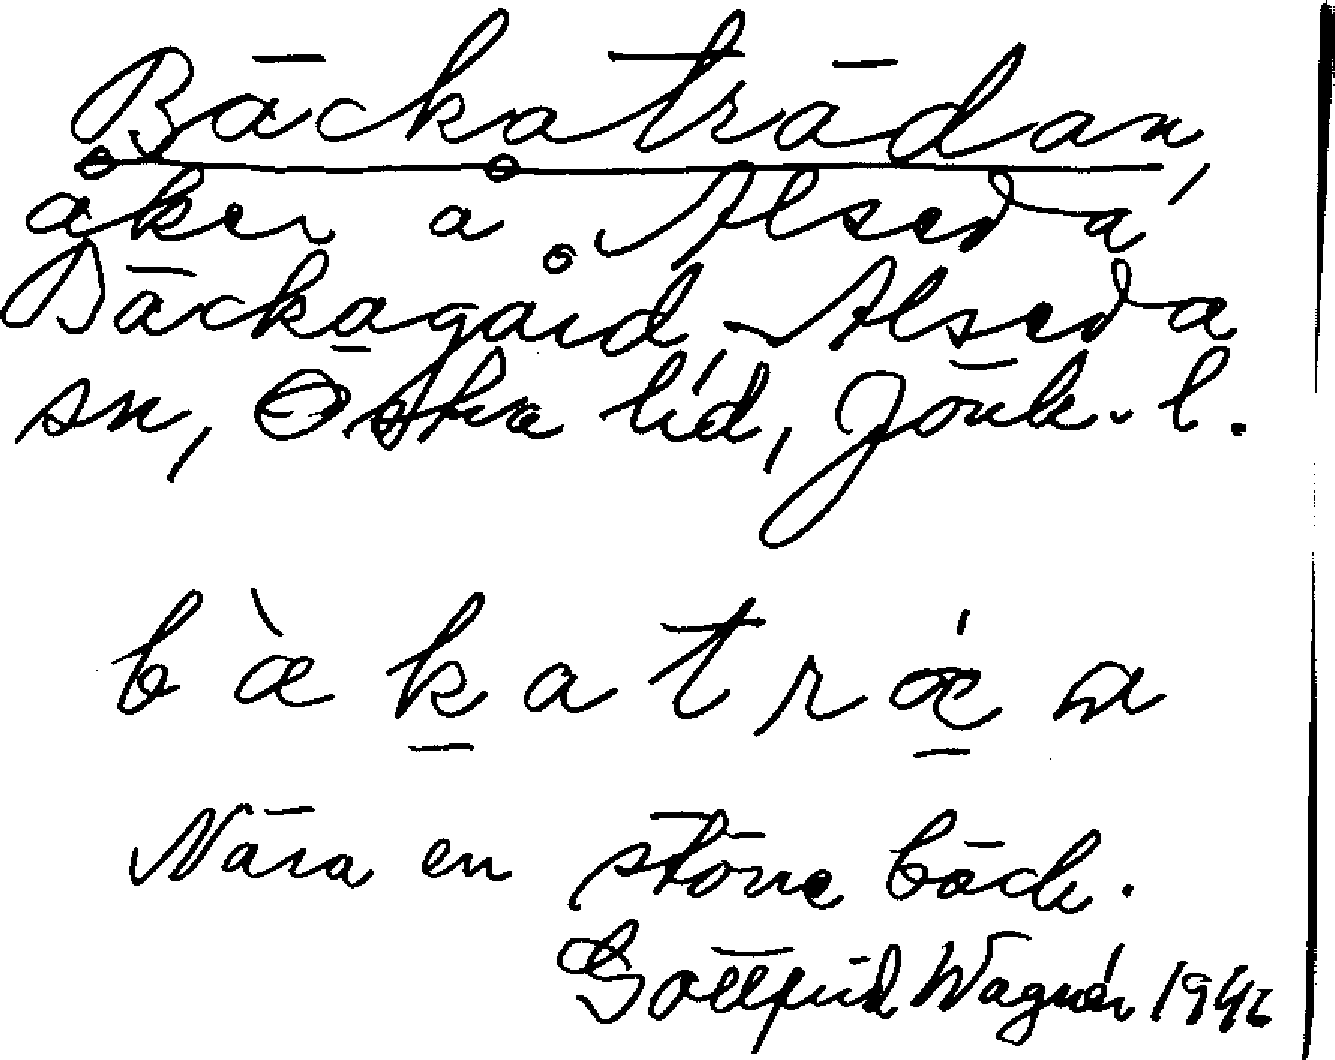 Bäckaträdan,
åker å Alseda
Bäckagård, Alseda
sn, Östra hd, Jönk. l.
bæ̀katrǽa
Nära en större bäck.
Gottfrid Wagnér 1946